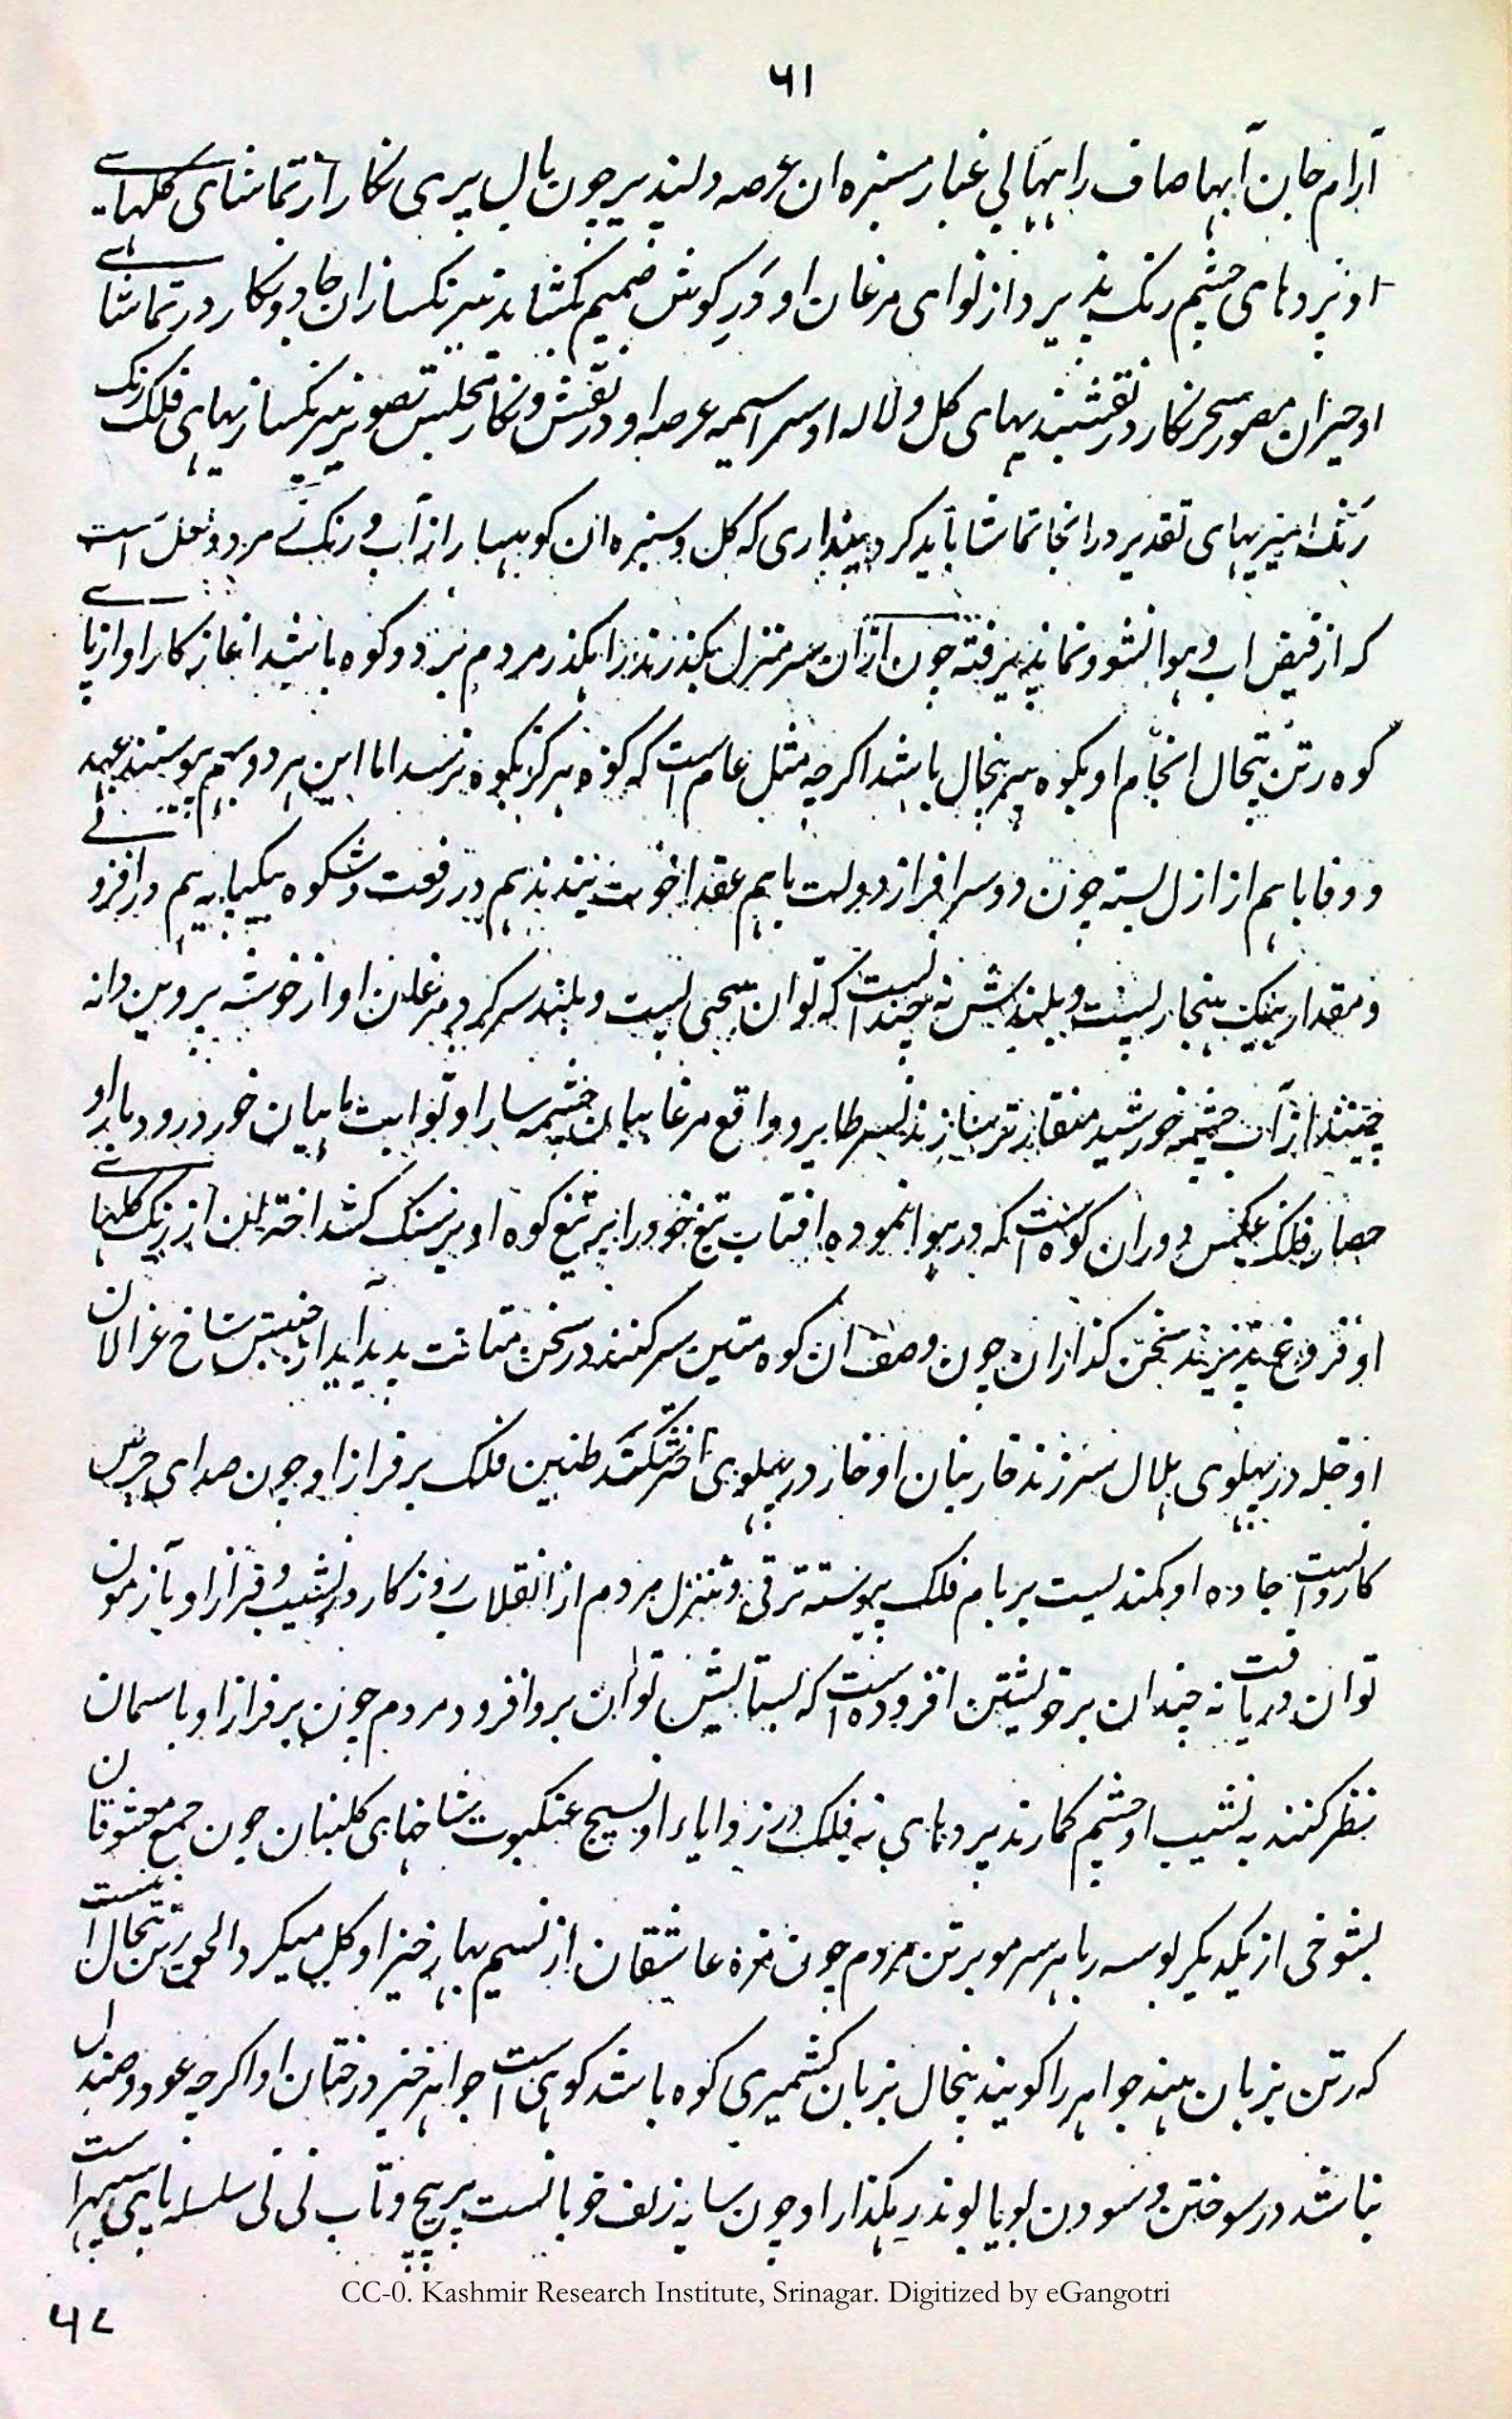 ۶۱
آرام جان آبها صاف را نهالی غبار سبزه ان عرصه دلپذیر چون بال پری نکار از تماشای کلهای
او پردهای چشم رنک پذیرد از نوای مرغان او در کوش ضمیم کشاید نیرنکسازان جادو نکار در تماشای
او حیران مصور سحر نکار در نقشبندیهای کل و لاله او سراسیمه عرصه او در نقش و نکار تصویر نیرنکسازیهای فلک رنک
رنک امیزیهای تقدیر در انجا تماشا باید کرد پنداری که کل و سبزه ان کوهسار از آب و رنک زمرد و لعل است
که از فیض اب و هوا نشو و نما پذیرفته چون ازان سر منزل بکذرند رابکذر مردم بر دو کوه باشد اغاز کار او از پای
کوه رتن پنجال انجام او بکوه پیرپنجال باشد اکرچه مثل عام است که کوه هرکز بکوه نرسد اما این هر دو بهم پیوستند عهد
و وفا باهم از ازل بسته چون دو سرافراز دولت باهم عقد اخوت بندند بهم در رفعت و شکوه یکپایه بهم در افزونی
و مقدار بیک هنجار پست و بلندش نه چندانست که توان سخن پست و بلند سر کرد مرغان او از خوشه پروین دانه
چینند از آب چشمه خورشید منقار تر سازند نسر طایر و واقع مرغابیان چشمه سار او ثوابت ماهیان خورد رودبار او
حصار فلک عکس دوران کوهست که در هوا نموده افتاب تیغ خود را بر تیغ کوه او بر سنک کشد اختران از رنک کلهای
او فروغ پذیرند سخن کذاران چون وصف ان کوه متین سر کنند در سخن متانت پدید آید از جنبش شاخ غزالان
او خله در پهلوی هلال سر زند خار بنان او خار در پهلوی اختر شکند طنین فلک بر فراز او چون صدای جرس
کاروانست جاده او کمندیست بر بام فلک پیوسته ترقی و تنزل مردم از انقلاب روزکار در نشیب و فراز او بازمون
توان دریافت نه چندان بر خویشتن افزوده است که بستایش توان برو افزود مردم چون بر فراز او باسمان
نظر کنند به نشیب او چشم کمارند پردهای نه فلک در زوایاء او نسیج عنکبوت شاخهای کلبنان چون جمع معشوقان
بشوخی از یکدیکر بوسه ربا هر سر مو برتن مردم چون مژه عاشقان از نسیم بهار خیز او کل میکرد الحق رتن پنجال است
که رتن بزبان هند جواهر را کویند پنجال بزبان کشمیری کوه باشد کوهی است جواهر خیز درختان او اکرچه عود و صندل
نباشد در سوختن و سودن بویا بوند رهکذار او چون سایه زلف خوبانست پر پیچ و تاب نی نی سلسله پای سپهر است
CC-0. Kashmir Research Institute, Srinagar. Digitized by eGangotri
۶۲